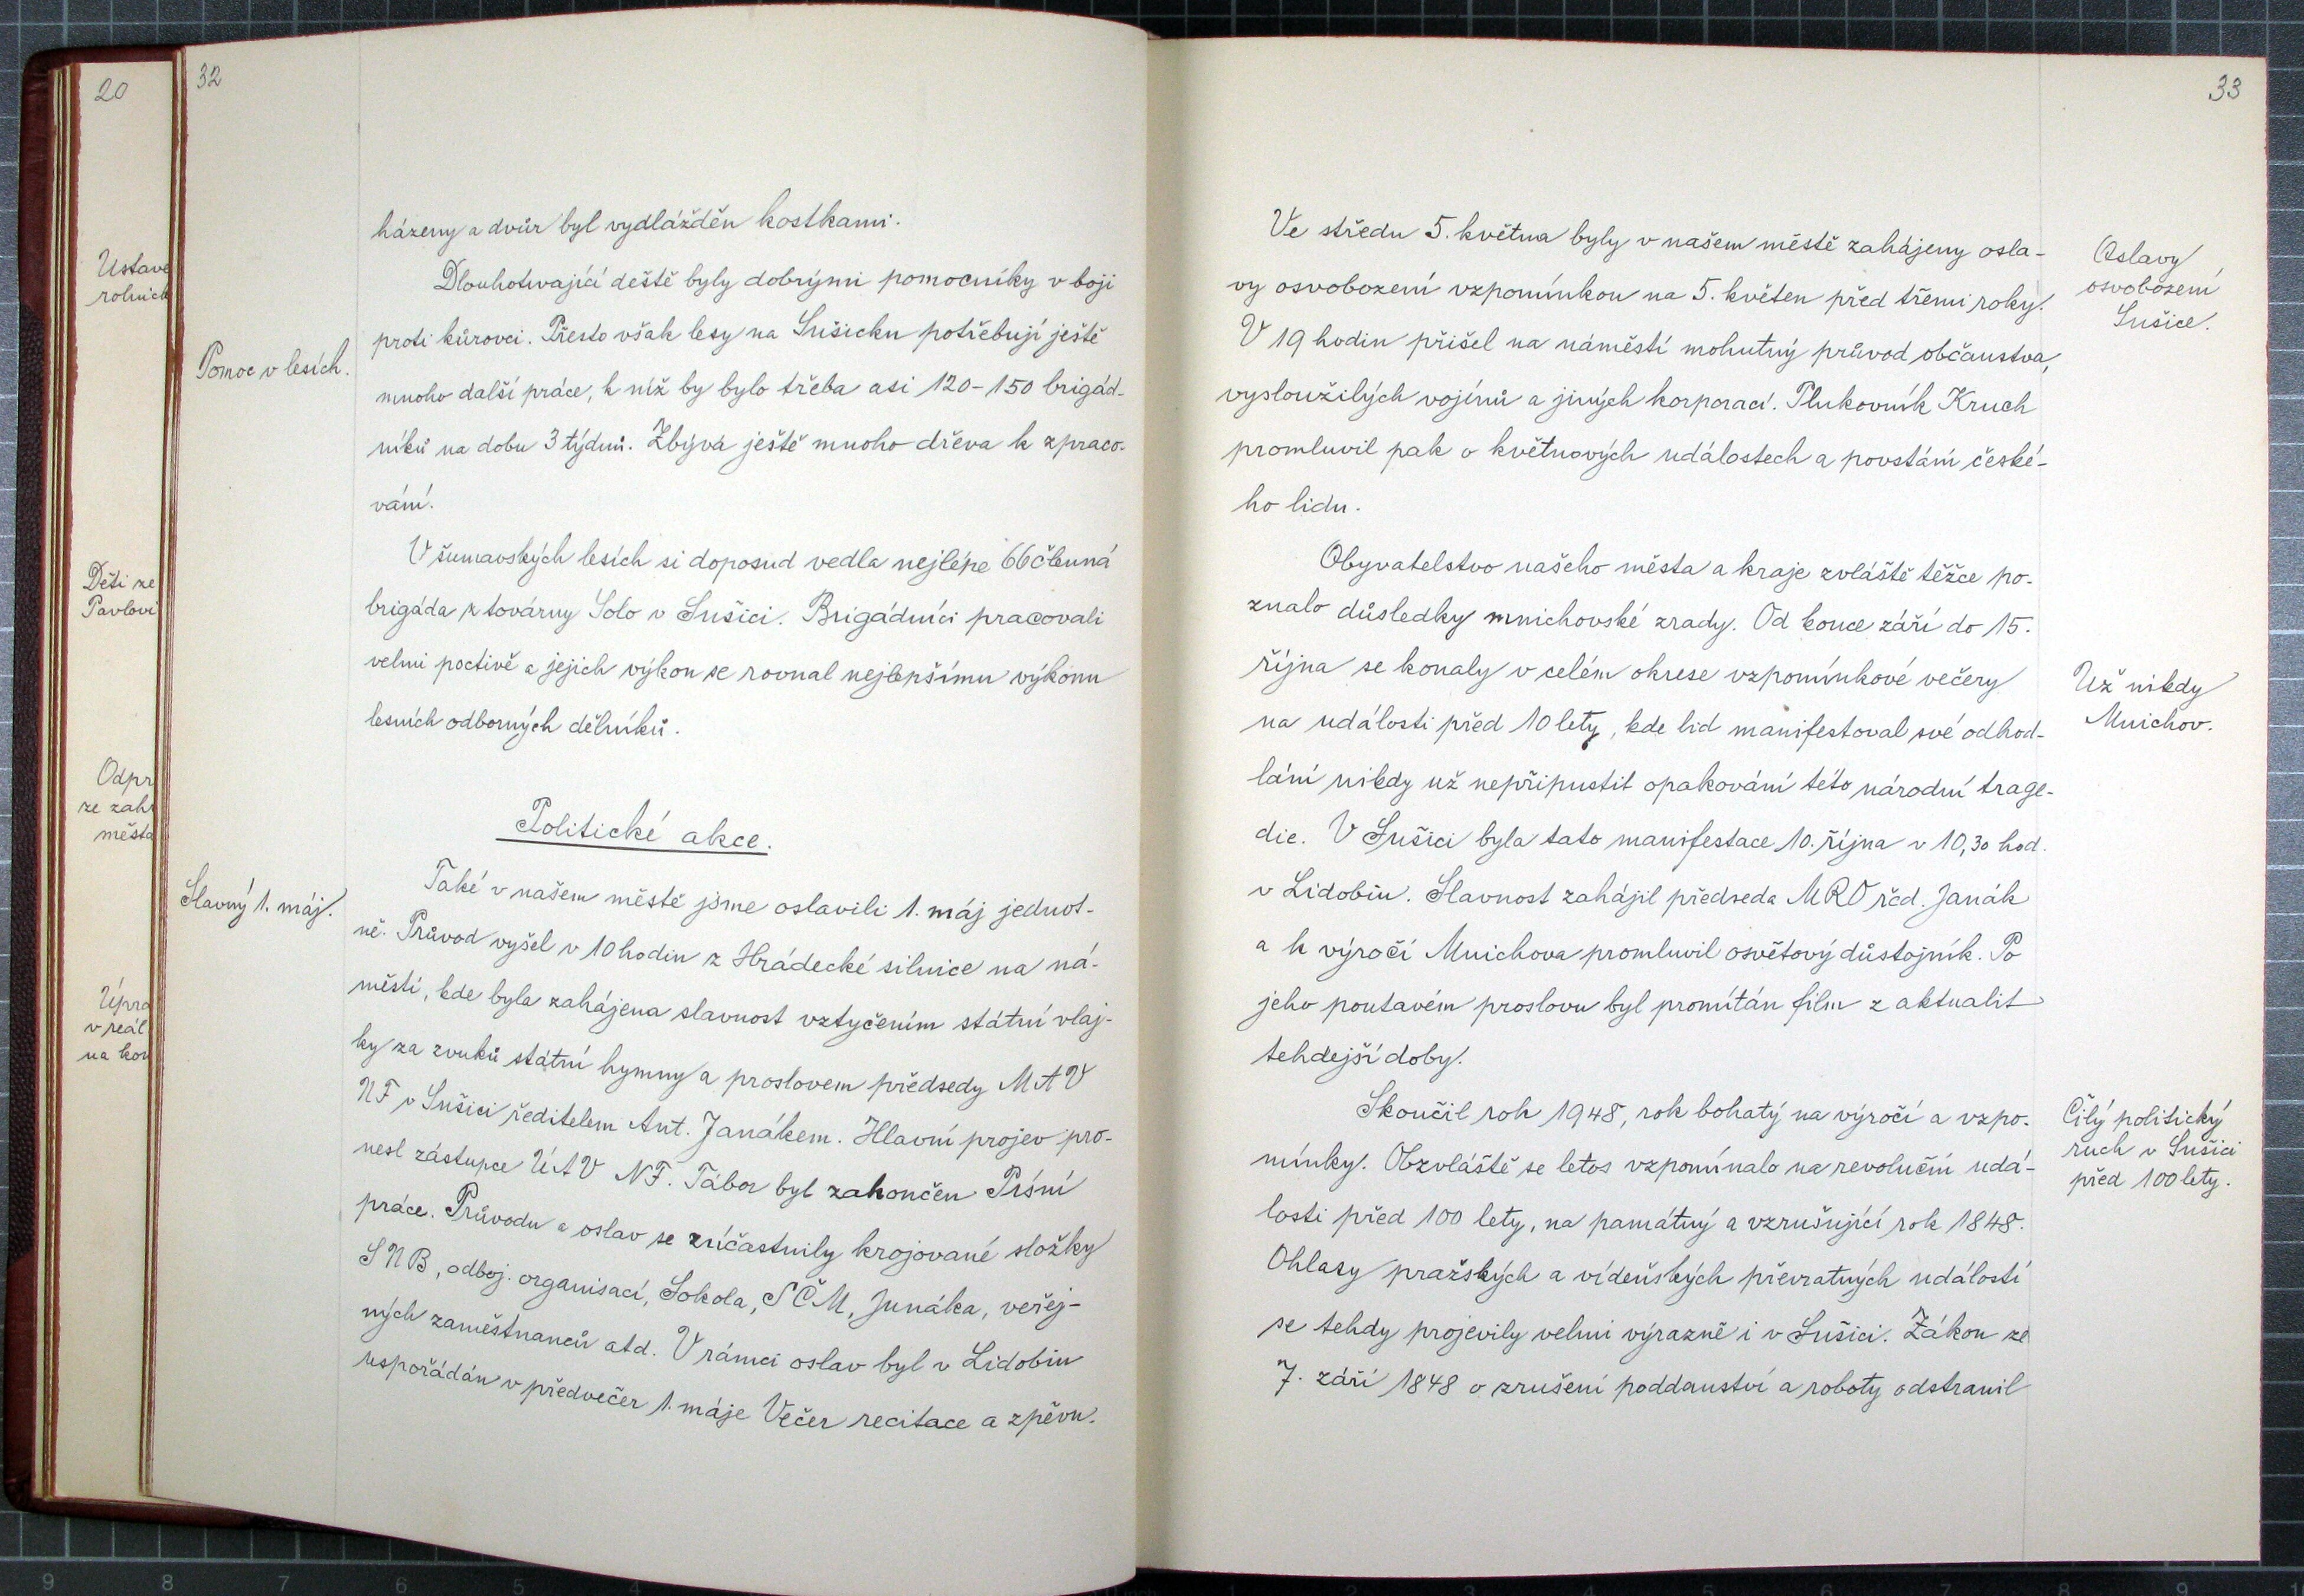 20
Ustave
rolnick
Děti ze
Pavlovi
Odpr
ze zahr
města
Úpra
v reál
na kon
32
házeny a dvůr byl vydlážděn kostkami.
Dlouhotrvající deště byly dobrými pomocníky v boji
proti kůrovci. Přesto však lesy na Sušicku potřebují ještě
Pomoc v lesích.
mnoho další práce, k níž by bylo třeba asi 120-150 brigád-
níků na dobu 3 týdnů. Zbývá ještě mnoho dřeva k zpraco-
vání.
V šumavských lesích si doposud vedla nejlépe 66členná
brigáda z továrny Solo v Sušici. Brigádníci pracovali
velmi poctivě a jejich výkon se rovnal nejlepšímu výkonu
lesních odborných dělníků.
Politické akce.
Slavný 1. máj.
Také v našem městě jsme oslavili 1. máj jednot-
ně. Průvod vyšel v 10 hodin z Hrádecké silnice na ná-
městí, kde byla zahájena slavnost vztyčením státní vlaj-
ky za zvuků státní hymny a proslovem předsedy MAV
NF v Sušici ředitelem Ant. Janákem. Hlavní projev pro-
nesl zástupce ÚAV NF. Tábor byl zakončen Písní
práce. Průvodu a oslav se zúčastnily krojované složky
SNB, odboj. organisací, Sokola, SČM, Junáka, veřej-
ných zaměstnanců atd. V rámci oslav byl v Lidobiu
uspořádán v předvečer 1. máje Večer recitace a zpěvu.
33
Ve středu 5. května byly v našem městě zahájeny osla-
vy osvobození vzpomínkou na 5. květen před třemi roky.
V 19 hodin přišel na náměstí mohutný průvod občanstva,
vysloužilých vojínů a jiných korporací. Plukovník Kruch
promluvil pak o květnových událostech a povstání české-
ho lidu.
Oslavy
osvobození
Sušice.
Obyvatelstvo našeho města a kraje zvláště těžce po-
znalo důsledky mnichovské zrady. Od konce září do 15.
října se konaly v celém okrese vzpomínkové večery
na události před 10 lety, kde lid manifestoval své odhod-
lání nikdy už nepřipustit opakování této národní trage-
die. V Sušici byla tato manifestace 10. října v 10,30 hod.
v Lidobiu. Slavnost zahájil předseda MRO řed. Janák
a k výročí Mnichova promluvil osvětový důstojník. Po
jeho poutavém proslovu byl promítán film z aktualit
tehdejší doby.
Už nikdy
Mnichov.
Skončil rok 1948, rok bohatý na výročí a vzpo-
mínky. Obzvláště se letos vzpomínalo na revoluční udá-
losti před 100 lety, na památný a vzrušující rok 1848.
Ohlasy pražských a vídeňských převratných událostí
se tehdy projevily velmi výrazně i v Sušici. Zákon ze
7. září 1848 o zrušení poddanství a roboty odstranil
Čilý politický
ruch v Sušici
před 100 lety.
9 8 7 6 5 4
1 2 3 4 5 6 7 8 9